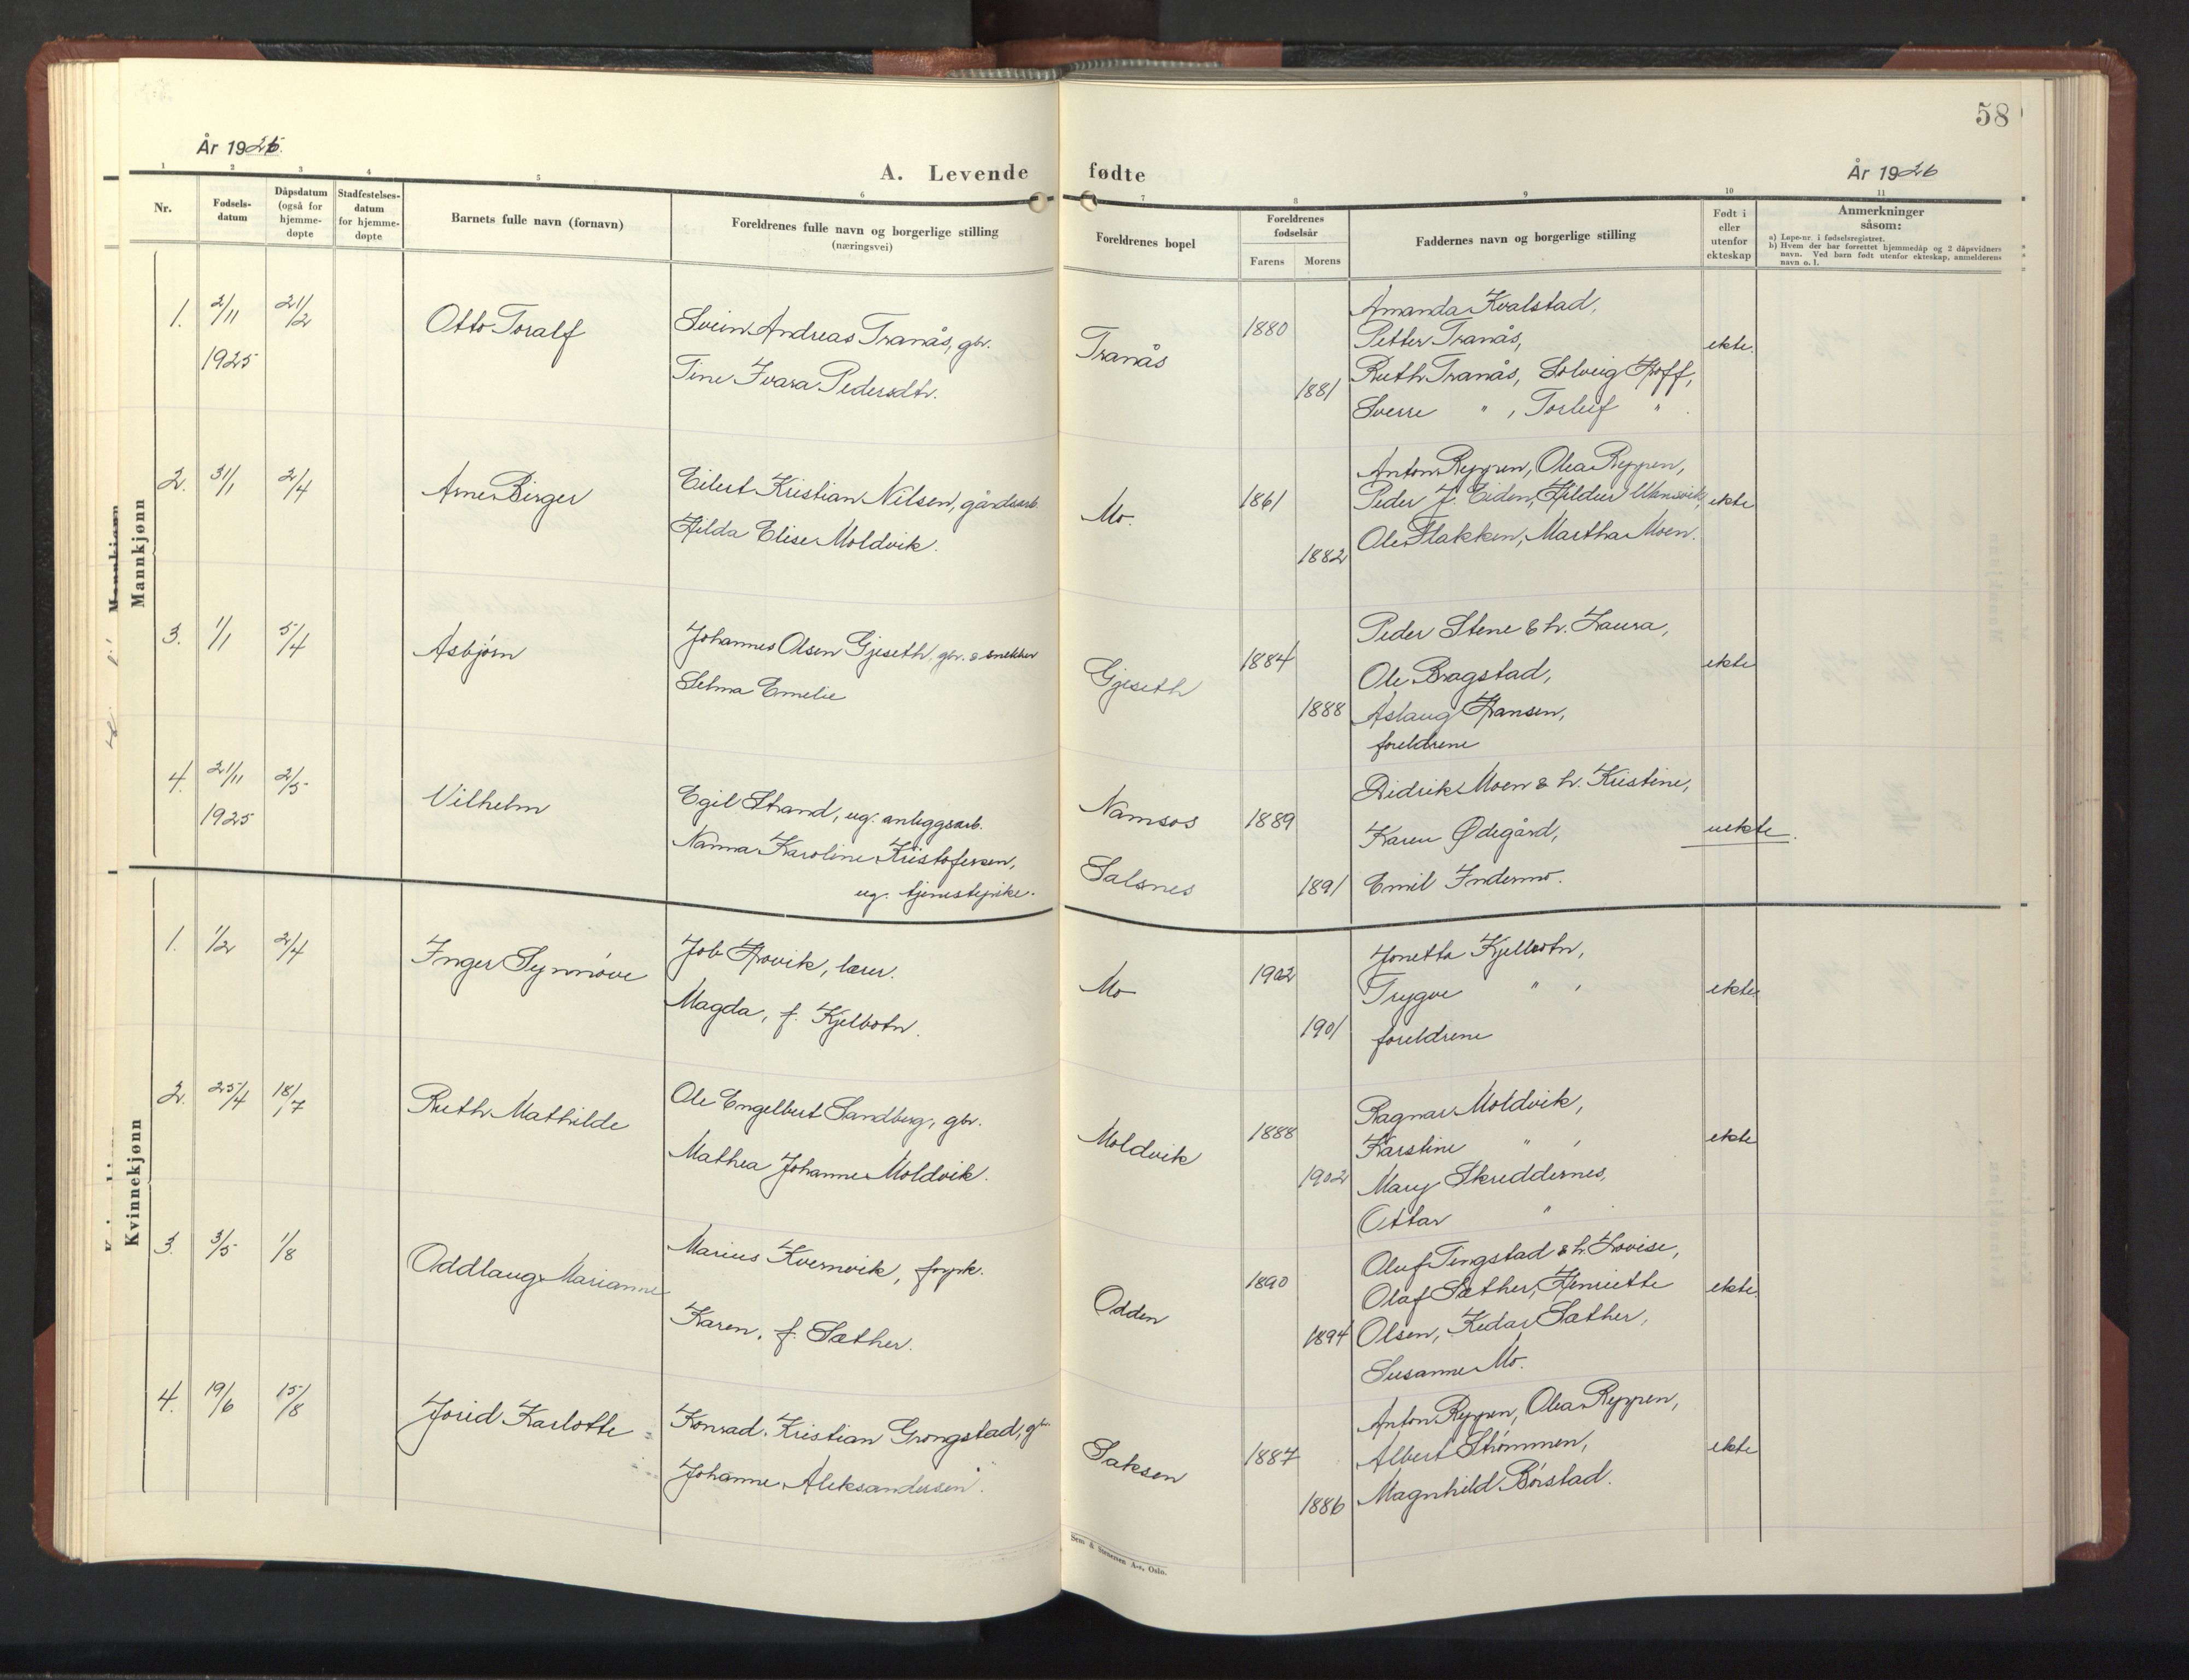 58
År 1926.
A. Levende fødte
År 1926
1 2 3 4 5 6 7 8 9 10 11
Nr.
Fødsels-
datum
Dåpsdatum
(også for
hjemme-
døpte
Stadfestelses-
datum
for hjemme-
døpte
Barnets fulle navn (fornavn)
Foreldrenes fulle navn og borgerlige stilling
(næringsvei)
Foreldrenes bopel
Foreldrenes
fødselsår
Farens Morens
Faddernes navn og borgerlige stilling
Født i
eller
utenfor
ekteskap
Anmerkninger
såsom:
a) Løpe-nr. i fødselsregistret.
b) Hvem der har forrettet hjemmedåp og 2 dåpsvidners
navn. Ved barn født utenfor ekteskap, anmelderens
navn o. l.
Mannkjønn
1. 2/11 1925 21/2 Otto Toralf
Svein Andreas Tranås, gbr.
Tine Ivara Pedersdtr.
Tranås 1880 1881
Amanda Kvalstad,
Petter Tranås,
Ruth Tranås, Solveig Hoff,
Sverre " , Torleif " .
ekte.
2. 31/1 2/4 Arne Birger
Eilert Kristian Nilsen, gårdsarb.
Hilda Elise Moldvik.
Mo. 1861 1882
Anton Ryppen, Olea Ryppen,
Peder J. Eiden, Hildur
Ole Flakken, Martha Moen.
ekte
3. 1/1 5/4 Asbjørn
Johannes Olsen Gjeseth, gbr. & snekker
Selma Emelie
Gjeseth 1884 1888
Peder Stene & h. Laura,
Ole Bragstad,
Aslaug Hansen,
foreldrene
ekte
4. 21/11 1925 2/5 Vilhelm
Egil Strand, ug. anleggsarb.
Nanna Karoline Kristofersen,
ug. tjenestepike.
Namsos
Salsnes
1889 1891
Didrik Moen & h. Kristine,
Karen Ødegård,
Emil Indermo.
uekte.
Kvinnekjønn
1. 1/2 2/4 Inger Synnøve
Job Hovik, lærer.
Magda, f. Kjelbotn.
Mo 1902 1901
Jonetta Kjelbotn,
Trygve " ,
foreldrene
ekte
2. 25/4 18/7 Ruth Mathilde
Ole Engelbert Sandberg, gbr.
Mathea Johanne Moldvik.
Moldvik 1888 1902
Ragnar Moldvik,
Karstine " ,
Mary Skreddernes,
Ottar "
ekte
3. 3/5 1/8 Oddlaug Marianne
Marius Kvernvik, forpk.
Karen, f. Sæther.
Odden 1890 1894
Oluf Tingstad & h. Lovise,
Olaf Sæther, Henriette
Olsen, Kedar Sæther,
Susanne Mo.
ekte.
4. 19/6 15/8 Jorid Karlotte
Konrad Kristian Grongstad, gbr.
Johanne Aleksandersen.
Saksen 1887 1886
Anton Ryppen, Olea Ryppen,
Albert Strømmen,
Magnhild Børstad.
ekte
Sem & Stenersen A-s, Oslo.